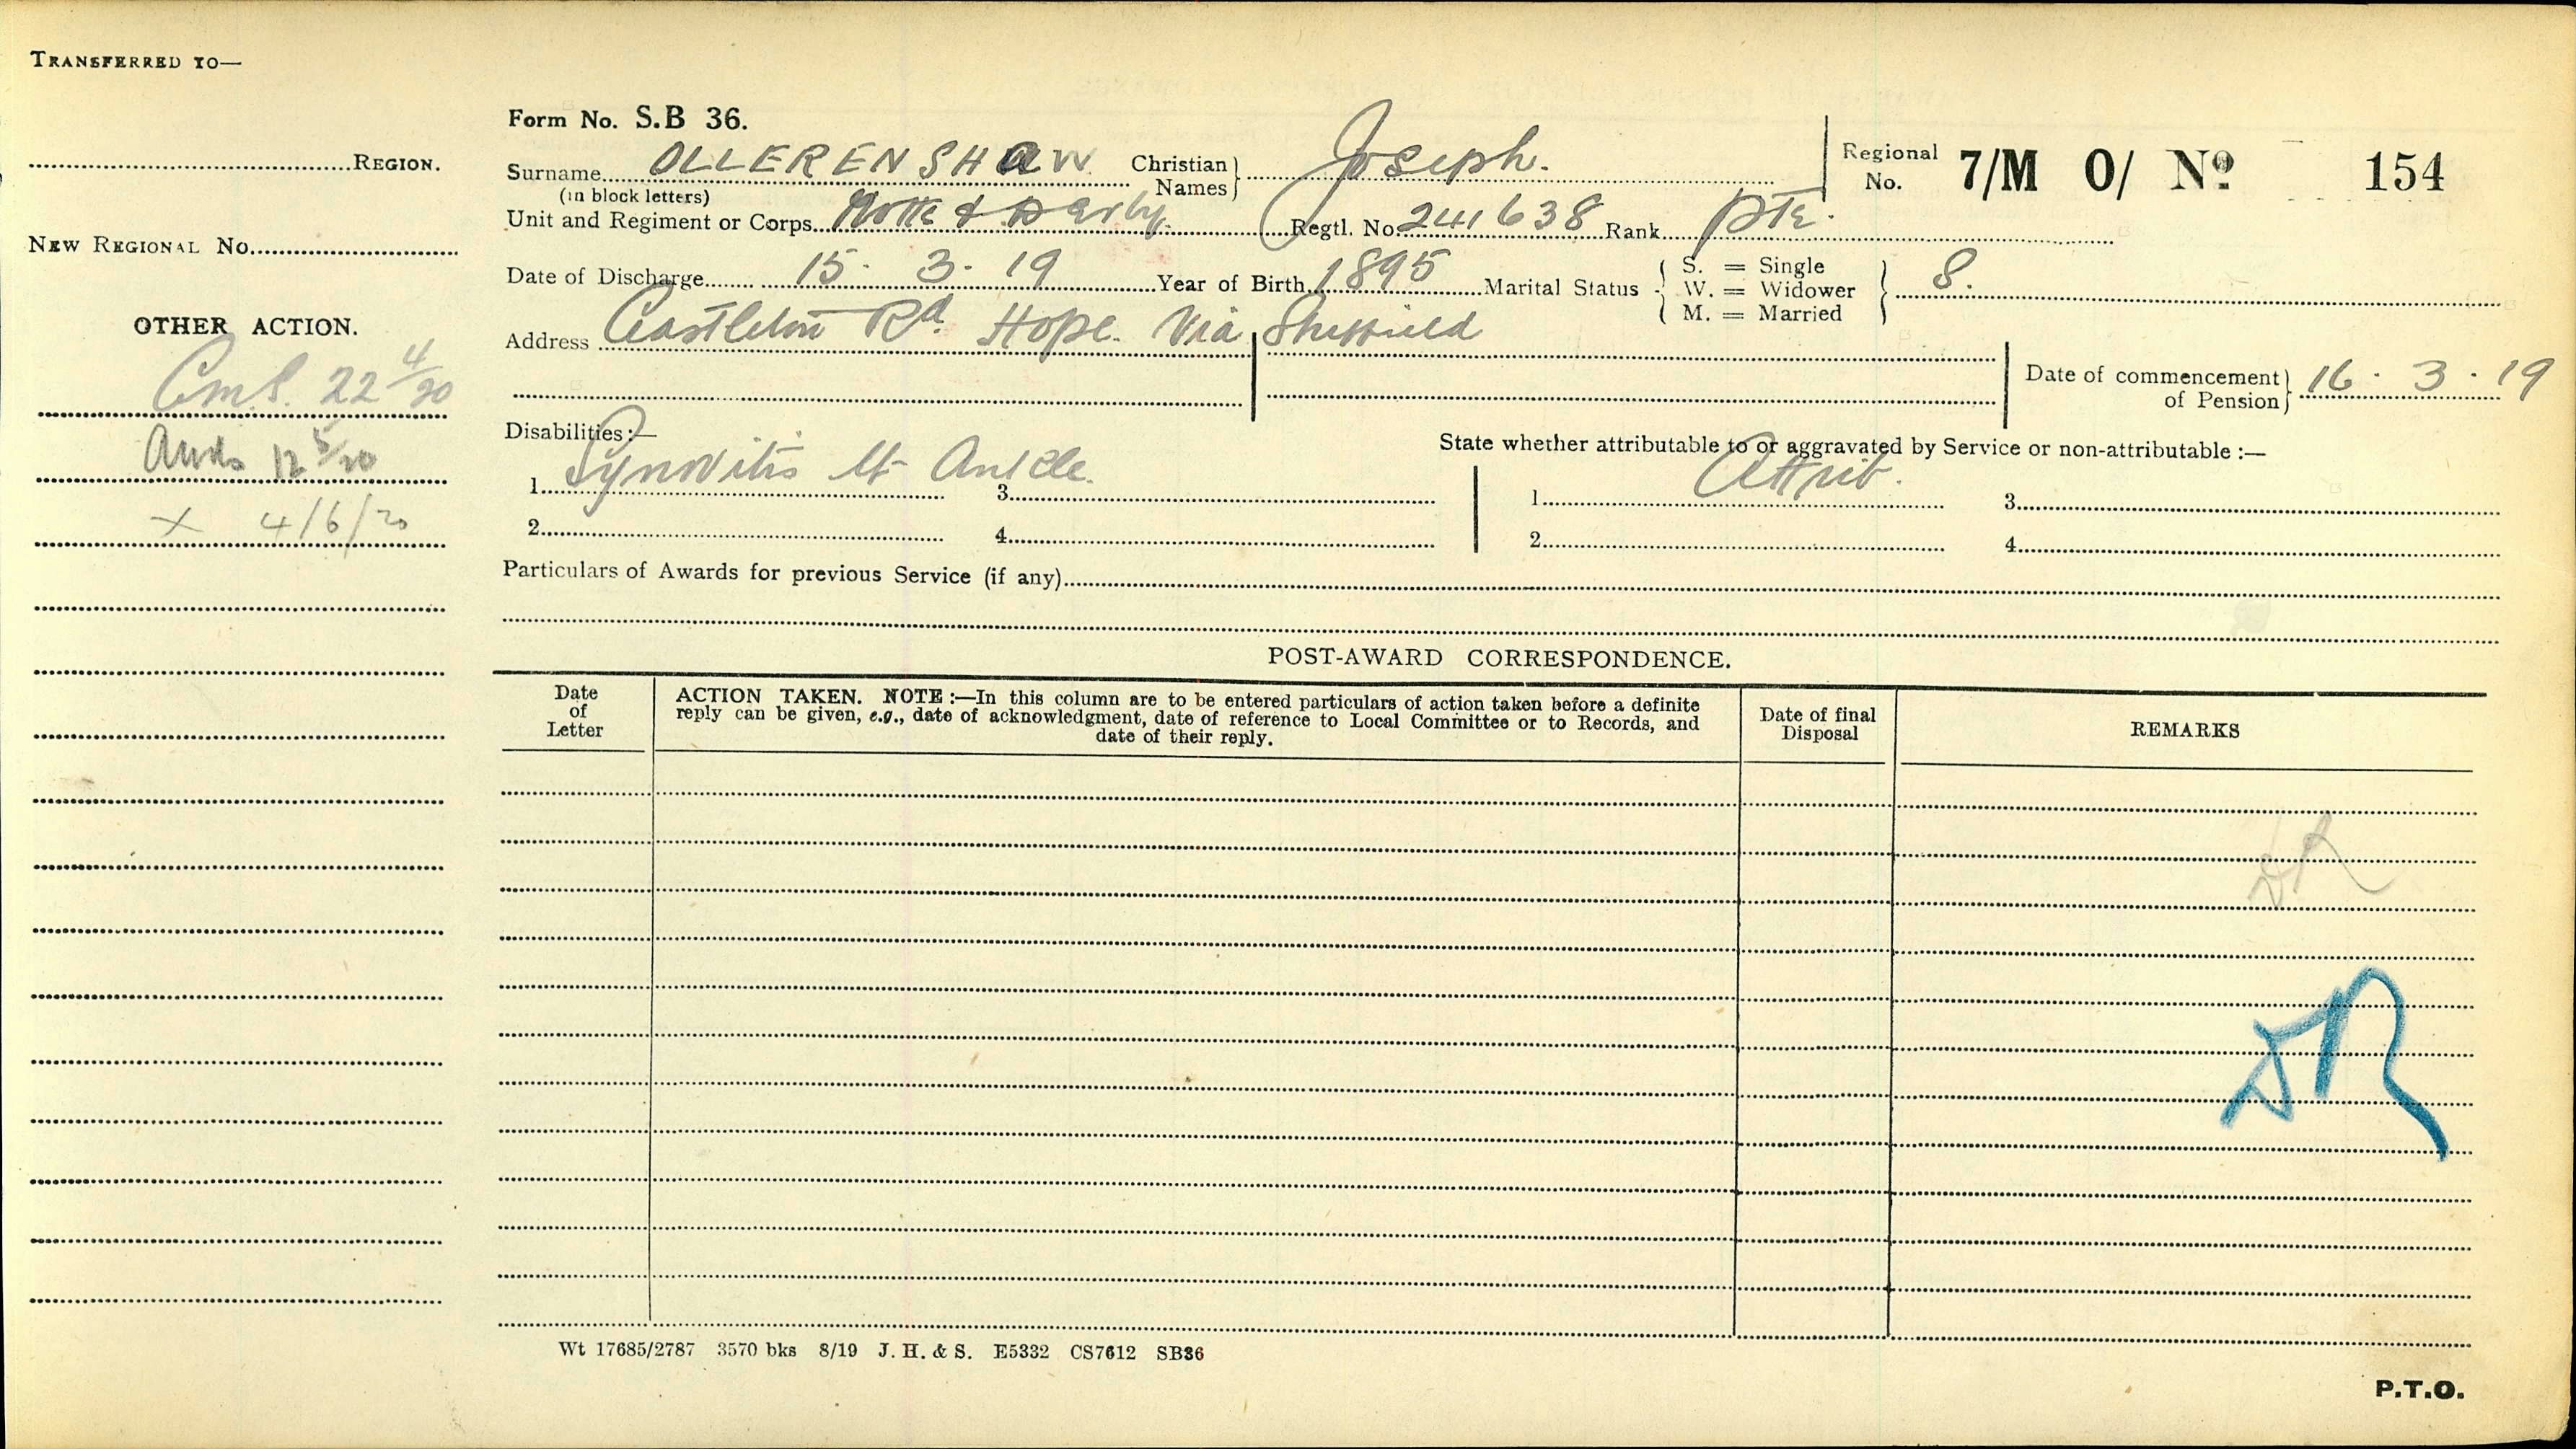 TRANSFERRED TO—
REGION.
NEW REGIONAL NO.
OTHER ACTION.
22 4/20
12 5/20
x 4/6/20
Form No. S.B 36.
Surname OLLERENSHAW Christian Names Joseph.
(in block letters)
Regional No. 7/M O/ Nº 154
Unit and Regiment or Corps Notts & Derby. Regtl. No. 241638 Rank Pte.
Date of Discharge 15. 3. 19 Year of Birth 1895 Marital Status { S. = Single W. = Widower M. = Married } S.
Address Castleton Rd. Hope. Via Sheffield
Date of commencement of Pension } 16. 3. 19
Disabilities:—
State whether attributable to or aggravated by Service or non-attributable :—
1. Synovitis lt Ankle. 3. 1. Attrib. 3.
2. 4. 2. 4.
Particulars of Awards for previous Service (if any)
POST-AWARD CORRESPONDENCE.
Date of Letter
ACTION TAKEN. NOTE :—In this column are to be entered particulars of action taken before a definite
reply can be given, e.g., date of acknowledgment, date of reference to Local Committee or to Records, and
date of their reply.
Date of final Disposal
REMARKS
DR
DR
Wt 17685/2787 3570 bks 8/19 J. H. & S. E5332 CS7612 SB36
P.T.O.